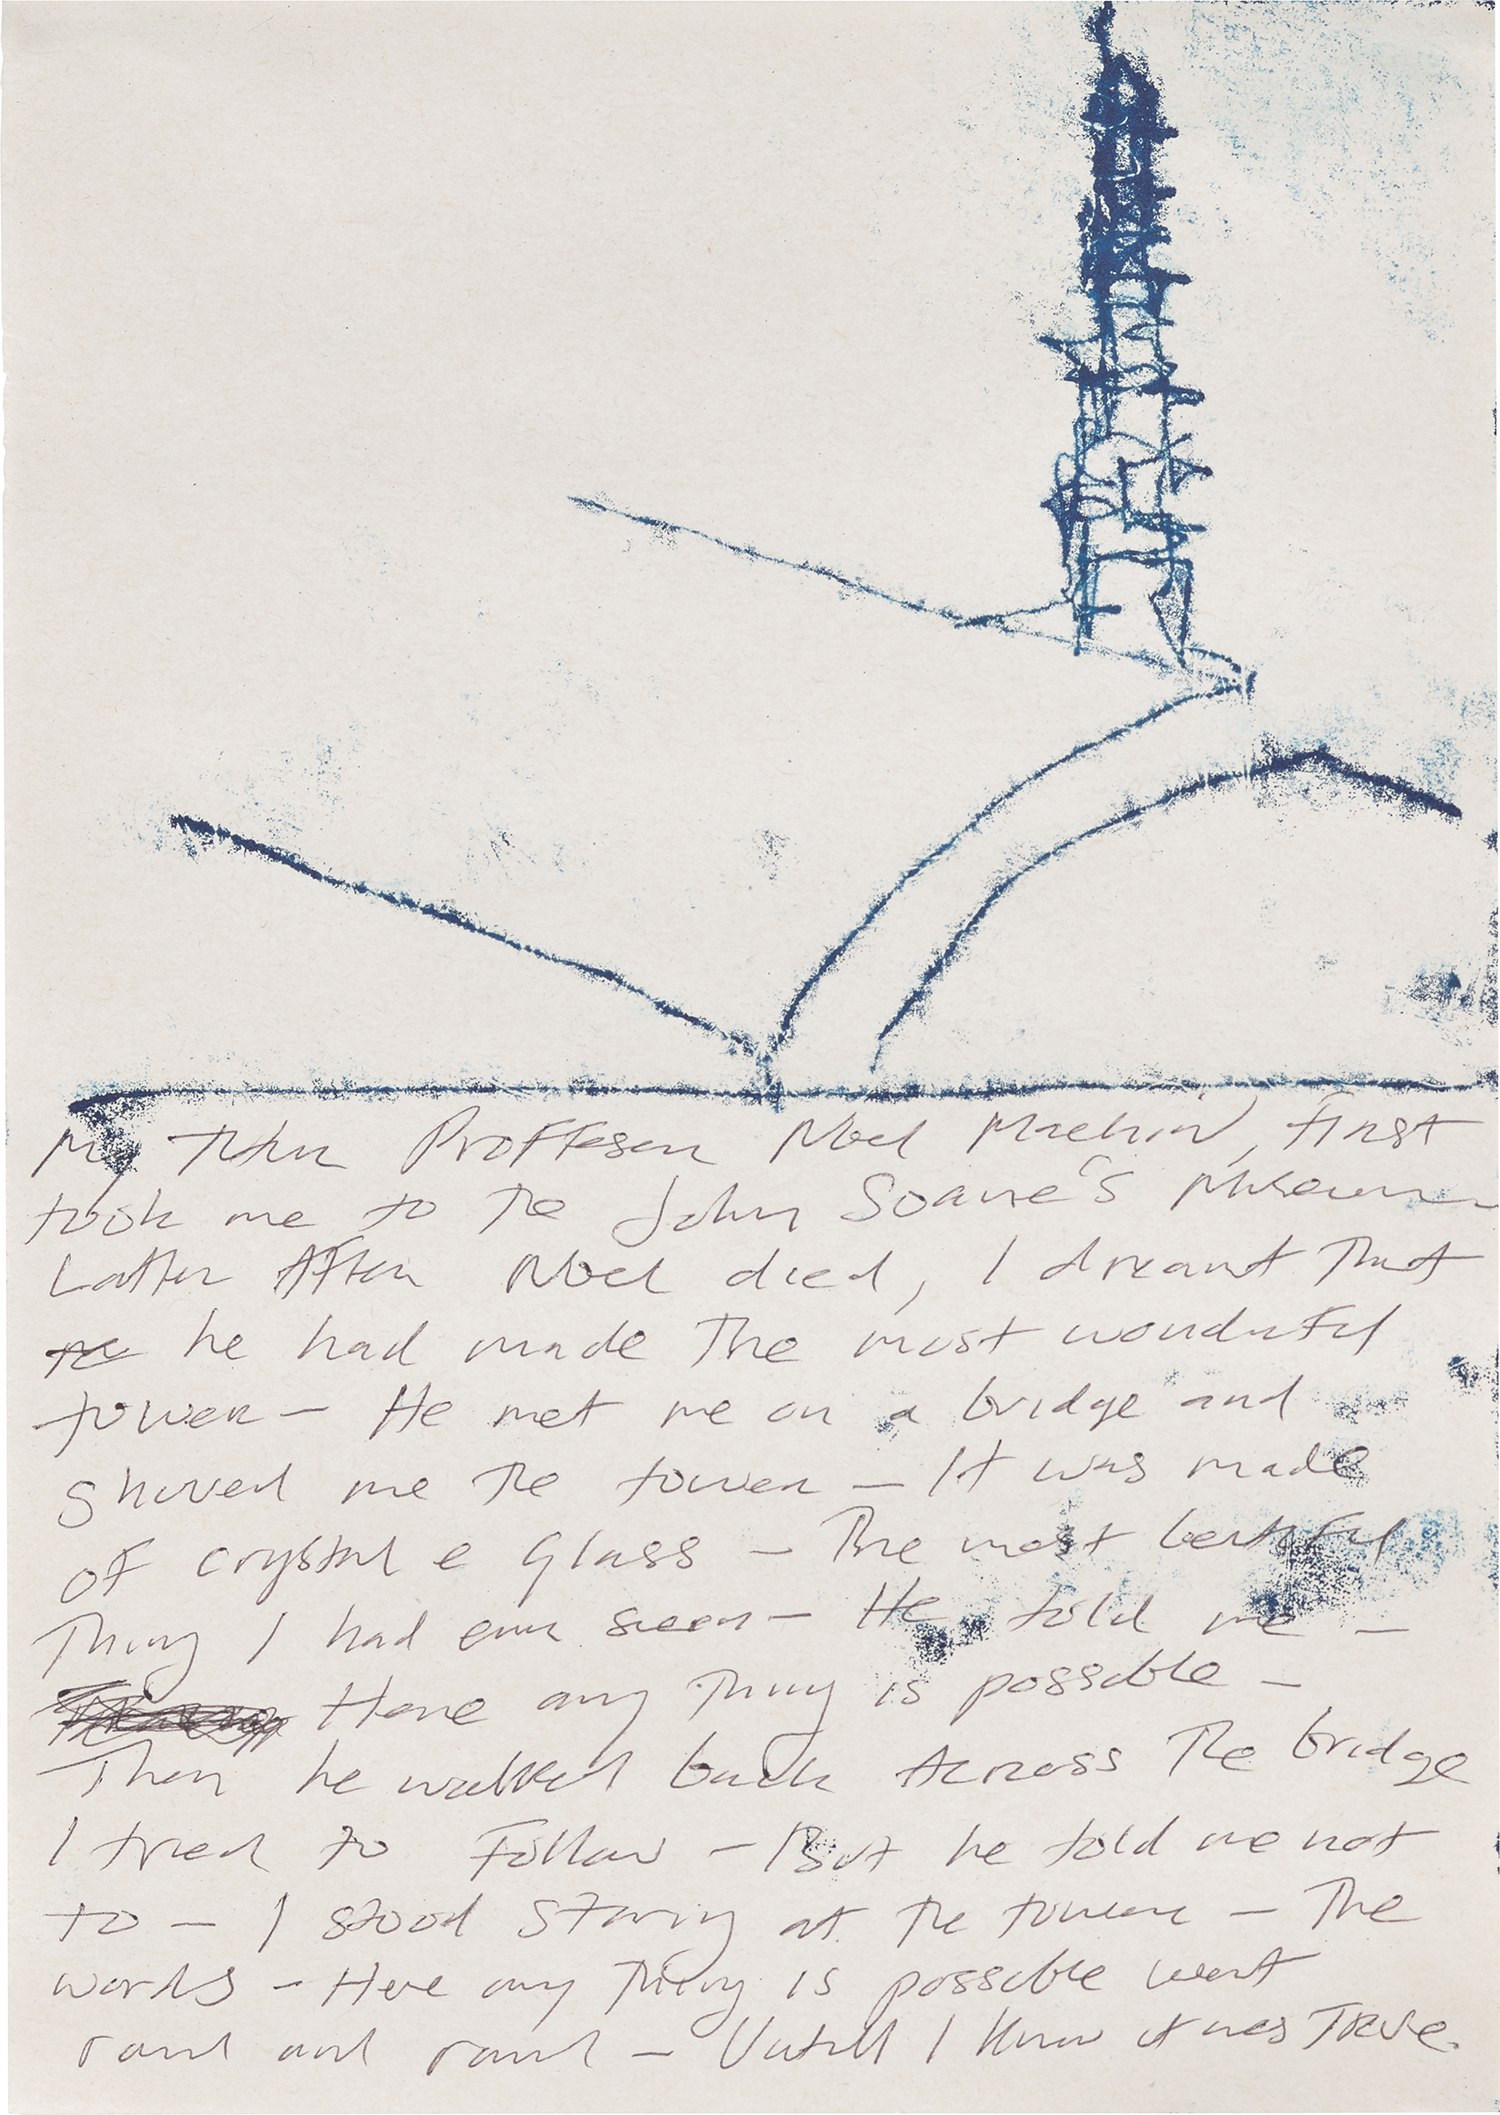 My Tutor Proffesor Noel Machin, first
took me to the John Soane's Museum
Latter After Noel died, I dreamt that
he had made The most wonderful
tower – He met me on a bridge and
showed me the tower – It was made
of crystal e Glass – The most beutiful
Thing I had ever seen – He told me –
Here any Thing is possible –
Then he walked back Across The bridge
I tried to Follow – But he told me not
to – I stood Staring at the tower – The
words – Here any Thing is possible went
round and round – Untill I Knew it was TRUE.